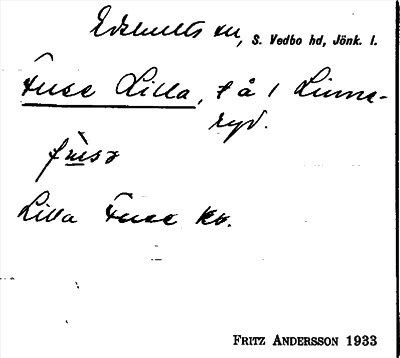 Edshults sn, S. Vedbo hd, Jönk. l.
Fuse Lilla, t å i Linne-
ryd.
Lilla Fuse kb.
FRITZ ANDERSSON 1933